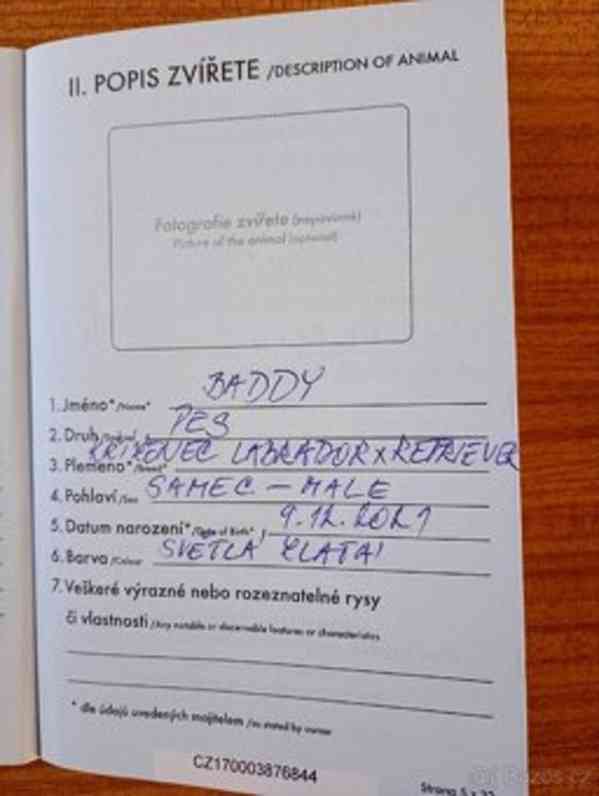 II. POPIS ZVÍŘETE /DESCRIPTION OF ANIMAL
Fotografie zvířete (nepovinné)
Picture of the animal (optional)
1. Jméno*/Name* BADDY
2. Druh/Species PES
3. Plemeno*/Breed* KŘÍŽENEC LABRADOR X RETRIEVER
4. Pohlaví/Sex SAMEC - MALE
5. Datum narození*/Date of Birth* 9.12.2021
6. Barva/Colour SVĚTLÁ ZLATÁ
7. Veškeré výrazné nebo rozeznatelné rysy
či vlastnosti /Any notable or discernable features or characteristics
* dle údajů uvedených majitelem /as stated by owner
CZ170003876844
Strana 5 z 32
Bazos.cz